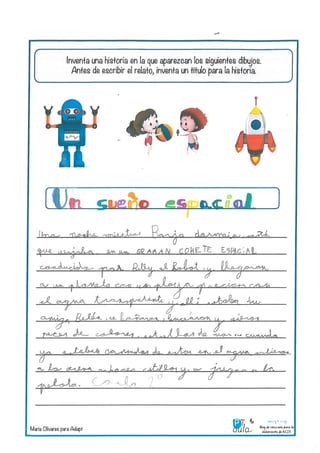 Inventa una historia en la que aparezcan los siguientes dibujos.
Antes de escribir el relato, inventa un título para la historia.
Un sueño espacial
Una noche mientras Borja dormía
que viajaba en un GRAAAN COHETE ESPACIAL
conducido por Roby el Robot y llegaron
a un planeta con una playa preciosa con
el agua transparente y allí estaba su
amiga, se bañaron, bucearon y vieron
peces de colores, estrellas de mar y cuando
ya estaban cansados de estar en el agua
a la arena a hacer castillos y a jugar a la
pelota.
María Olivares para Adapt